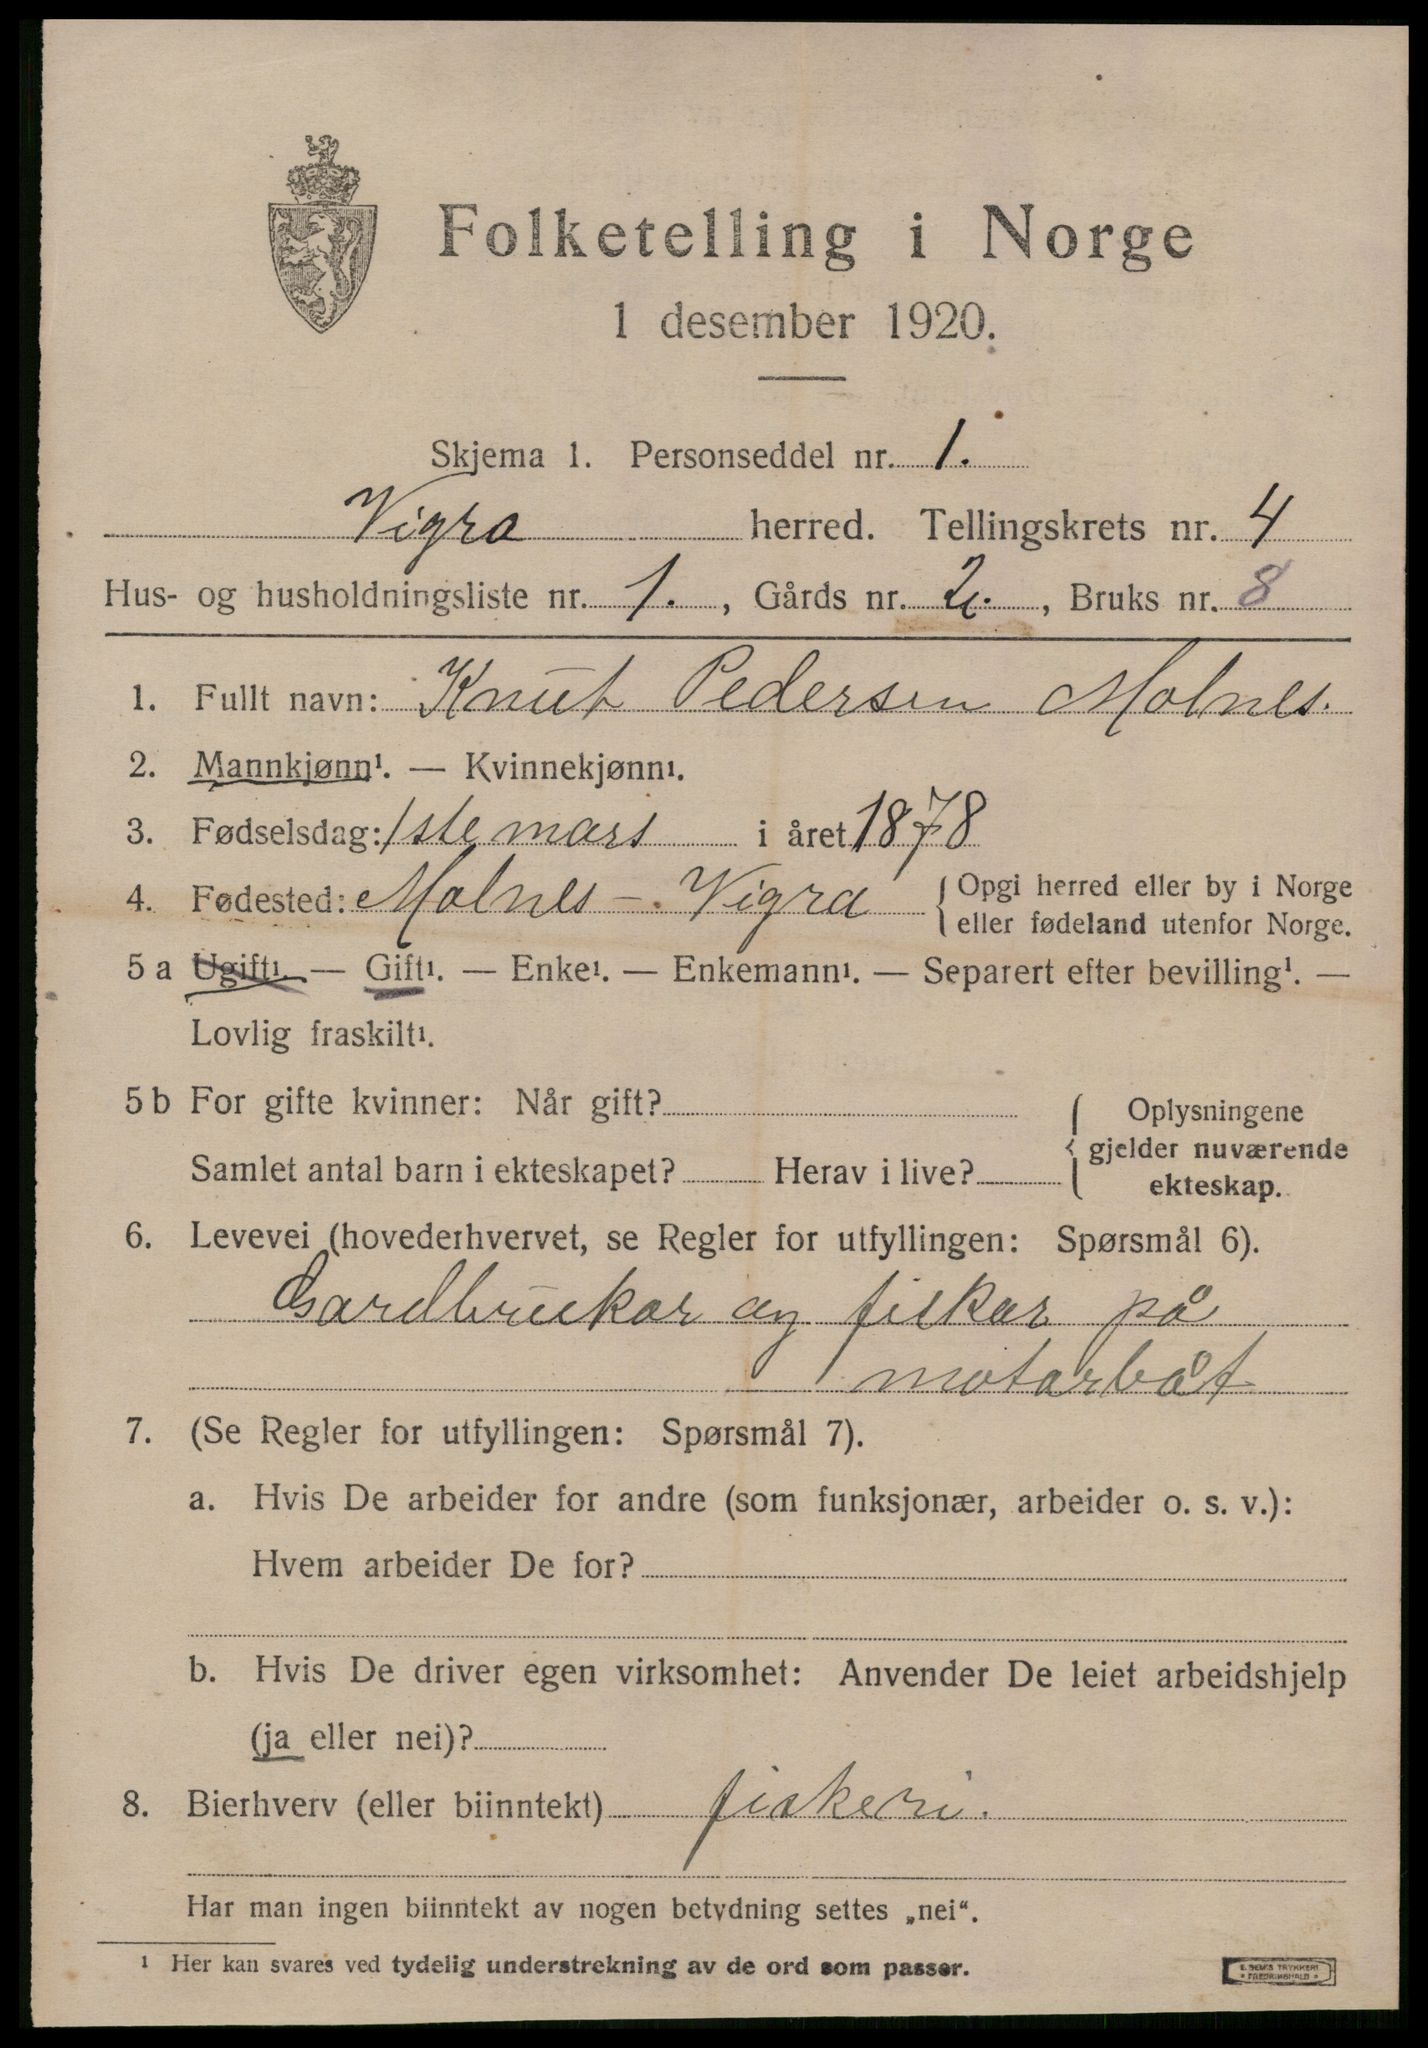 Folketelling i Norge
1 desember 1920.
Skjema 1. Personseddel nr. 1.
Vigra herred. Tellingskrets nr. 4
Hus- og husholdningsliste nr. 1. , Gårds nr. 2. , Bruks nr. 8
1. Fullt navn: Knut Pedersen Molnes.
2. Mannkjønn¹. — Kvinnekjønn¹.
3. Fødselsdag: 1ste mars i året 1878
4. Fødested: Molnes - Vigra { Opgi herred eller by i Norge
eller fødeland utenfor Norge.
5 a Ugift¹. — Gift¹. — Enke¹. — Enkemann¹. — Separert efter bevilling¹. —
Lovlig fraskilt¹.
5 b For gifte kvinner: Når gift?
Samlet antal barn i ekteskapet? Herav i live?
{ Oplysningene
gjelder nuværende
ekteskap.
6. Levevei (hovederhvervet, se Regler for utfyllingen: Spørsmål 6).
Gardbrukar og fiskar på
motorbåt
7. (Se Regler for utfyllingen: Spørsmål 7).
a. Hvis De arbeider for andre (som funksjonær, arbeider o. s. v.):
Hvem arbeider De for?
b. Hvis De driver egen virksomhet: Anvender De leiet arbeidshjelp
(ja eller nei)?
8. Bierhverv (eller biinntekt) fiskeri.
Har man ingen biinntekt av nogen betydning settes „nei“.
¹ Her kan svares ved tydelig understrekning av de ord som passer.
E. SEM'S TRYKKERI
* FREDRIKSHALD *